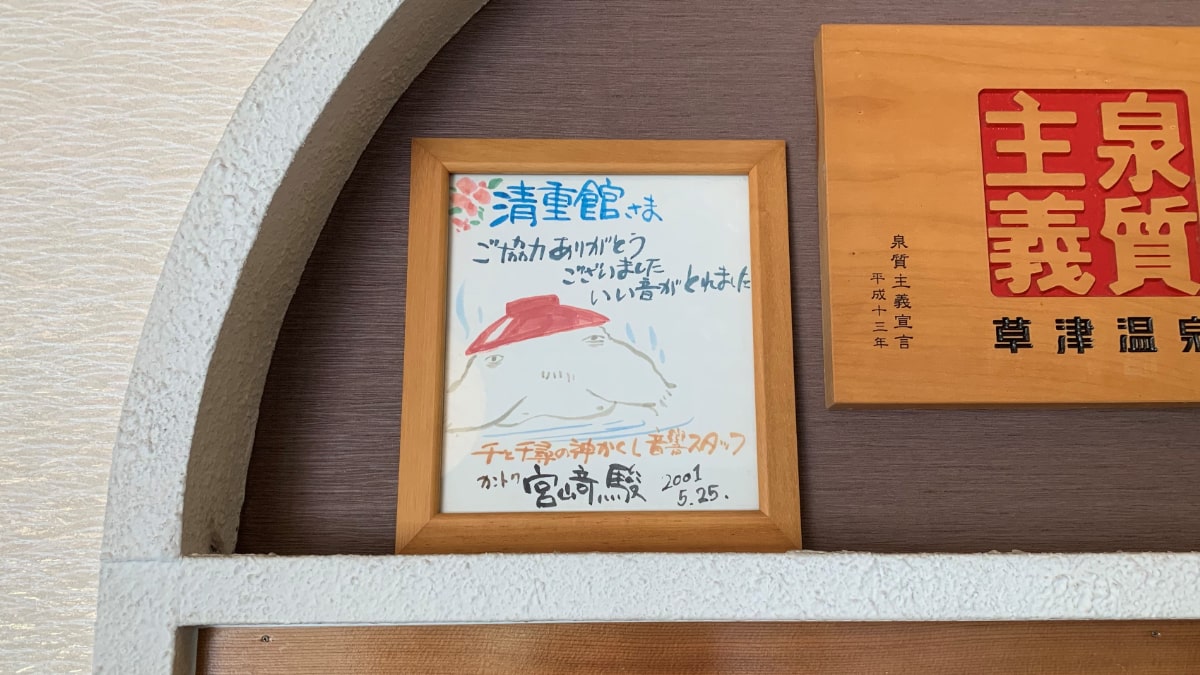 清重館さま
ご協力ありがとう
ございました
いい音がとれました
千と千尋の神かくし 音響スタッフ
カントク 宮崎駿 2001
5.25.
泉質
主義
泉質主義宣言
平成十三年
草津温泉